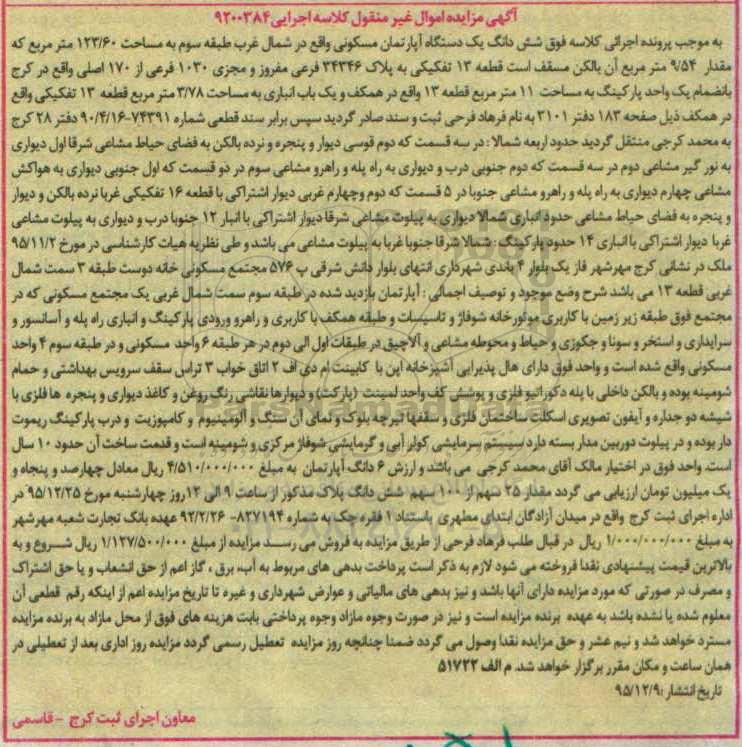 آگهی مزایده اموال غیر منقول کلاسه اجرایی ۹۲۰۰۳۸۴
به موجب پرونده اجرائی کلاسه فوق شش دانگ یک دستگاه آپارتمان مسکونی واقع در شمال غرب طبقه سوم به مساحت ۱۲۳/۶۰ متر مربع که
مقدار ۹/۵۴ متر مربع آن بالکن مسقف است قطعه ۱۳ تفکیکی به پلاک ۳۴۳۴۶ فرعی مفروز و مجزی ۱۰۳۰ فرعی از ۱۷۰ اصلی واقع در کرج
بانضمام یک واحد پارکینگ به مساحت ۱۱ متر مربع قطعه ۱۳ واقع در همکف و یک باب انباری به مساحت ۳/۷۸ متر مربع قطعه ۱۳ تفکیکی واقع
در همکف ذیل صفحه ۱۸۳ دفتر ۳۱۰۱ به نام فرهاد فرحی ثبت و سند صادر گردید سپس برابر سند قطعی شماره ۷۴۳۹۱-۹۰/۴/۱۶ دفتر ۲۸ کرج
به محمد کرجی منتقل گردید حدود اربعه شمالا : در سه قسمت که دوم قوسی دیوار و پنجره و نرده بالکن به فضای حیاط مشاعی شرقا اول دیواری
به نور گیر مشاعی دوم در سه قسمت که دوم جنوبی درب و دیواری به راه پله و راهرو مشاعی سوم در دو قسمت که اول جنوبی دیواری به هواکش
مشاعی چهارم دیواری به راه پله و راهرو مشاعی جنوبا در ۵ قسمت که دوم وچهارم غربی دیوار اشتراکی با قطعه ۱۶ تفکیکی غربا نرده بالکن و دیوار
و پنجره به فضای حیاط مشاعی حدود انباری شمالا دیواری به پیلوت مشاعی شرقا دیوار اشتراکی با انبار ۱۲ جنوبا درب و دیواری به پیلوت مشاعی
غربا دیوار اشتراکی با انباری ۱۴ حدود پارکینگ : شمالا شرقا جنوبا غربا به پیلوت مشاعی می باشد و طی نظریه هیات کارشناسی در مورخ ۹۵/۱۱/۲
ملک در نشانی کرج مهرشهر فاز یک بلوار ۴ باندی شهرداری انتهای بلوار دانش شرقی پ ۵۷۶ مجتمع مسکونی خانه دوست طبقه ۳ سمت شمال
غربی قطعه ۱۳ می باشد شرح وضع موجود و توصیف اجمالی : آپارتمان بازدید شده در طبقه سوم سمت شمال غربی یک مجتمع مسکونی که در
مجتمع فوق طبقه زیر زمین با کاربری موتورخانه شوفاژ و تاسیسات و طبقه همکف با کاربری و راهرو ورودی پارکینگ و انباری راه پله و آسانسور و
سرایداری و استخر و سونا و جکوزی و حیاط و محوطه مشاعی و آلاچیق در طبقات اول الی دوم در هر طبقه ۶ واحد مسکونی و در طبقه سوم ۴ واحد
مسکونی واقع شده است و واحد فوق دارای هال پذیرایی آشپزخانه اپن با کابینت ام دی اف ۲ اتاق خواب ۳ تراس سقف سرویس بهداشتی و حمام
شومینه بوده و بالکن داخلی با پله دکوراتیو فلزی و پوشش کف واحد لمینت (پارکت) و دیوارها نقاشی رنگ روغن و کاغذ دیواری و پنجره ها فلزی با
شیشه دو جداره و آیفون تصویری اسکلت ساختمان فلزی و سقفها تیرچه بلوک و نمای آن سنگ و آلومینیوم و کامپوزیت و درب پارکینگ ریموت
دار بوده و در پیلوت دوربین مدار بسته دارد سیستم سرمایشی کولر آبی و گرمایشی شوفاژ مرکزی و شومینه است و قدمت ساخت آن حدود ۱۰ سال
است. واحد فوق در اختیار مالک آقای محمد کرجی می باشد و ارزش ۶ دانگ آپارتمان به مبلغ ۴/۵۱۰/۰۰۰/۰۰۰ ریال معادل چهارصد و پنجاه و
یک میلیون تومان ارزیابی می گردد مقدار ۲۵ سهم از ۱۰۰ سهم شش دانگ پلاک مذکور از ساعت ۹ الی ۱۲روز چهارشنبه مورخ ۹۵/۱۲/۲۵ در
اداره اجرای ثبت کرج واقع در میدان آزادگان ابتدای مطهری باستناد ۱ فقره چک به شماره ۸۲۷۱۹۴- ۹۲/۲/۲۶ عهده بانک تجارت شعبه مهرشهر
به مبلغ ۱/۰۰۰/۰۰۰/۰۰۰ ریال در قبال طلب فرهاد فرحی از طریق مزایده به فروش می رسد مزایده از مبلغ ۱/۱۲۷/۵۰۰/۰۰۰ ریال شروع و به
بالاترین قیمت پیشنهادی نقدا فروخته می شود لازم به ذکر است پرداخت بدهی های مربوط به آب، برق ، گاز اعم از حق انشعاب و یا حق اشتراک
و مصرف در صورتی که مورد مزایده دارای آنها باشد و نیز بدهی های مالیاتی و عوارض شهرداری و غیره تا تاریخ مزایده اعم از اینکه رقم قطعی آن
معلوم شده یا نشده باشد به عهده برنده مزایده است و نیز در صورت وجوه مازاد وجوه پرداختی بابت هزینه های فوق از محل مازاد به برنده مزایده
مسترد خواهد شد و نیم عشر و حق مزایده نقدا وصول می گردد ضمنا چنانچه روز مزایده تعطیل رسمی گردد مزایده روز اداری بعد از تعطیلی در
همان ساعت و مکان مقرر برگزار خواهد شد. م الف ۵۱۷۲۲
تاریخ انتشار :۹۵/۱۲/۹
معاون اجرای ثبت کرج - قاسمی